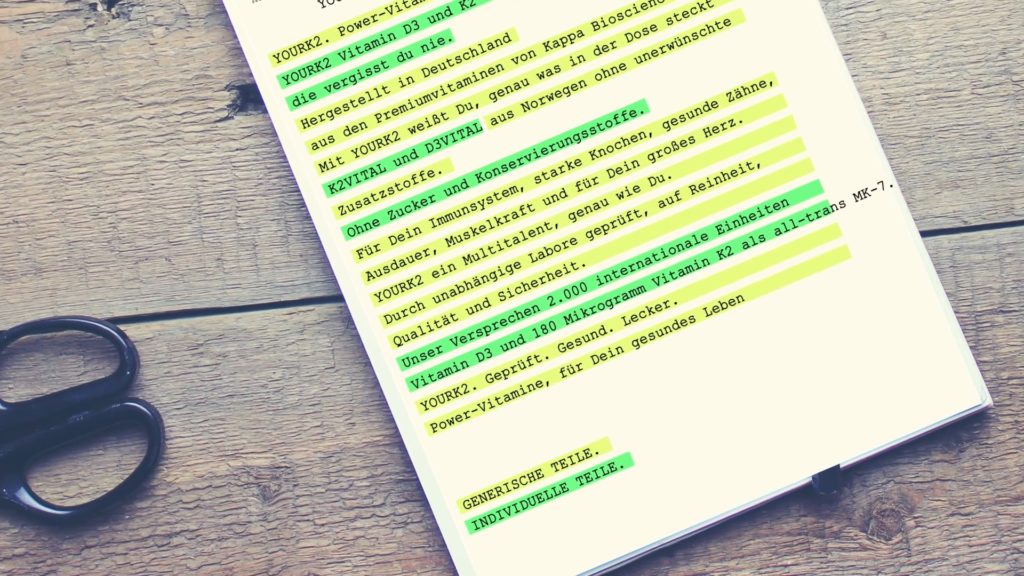 YOU
YOURK2. Power-Vitam
YOURK2 Vitamin D3 und K2
die vergisst du nie.
Hergestellt in Deutschland
aus den Premiumvitaminen von Kappa Bioscienc
Mit YOURK2 weißt Du, genau was in der Dose steckt
K2VITAL und D3VITAL aus Norwegen ohne unerwünschte
Zusatzstoffe.
Ohne Zucker und Konservierungsstoffe.
Für Dein Immunsystem, starke Knochen, gesunde Zähne,
Ausdauer, Muskelkraft und für Dein großes Herz.
YOURK2 ein Multitalent, genau wie Du.
Durch unabhängige Labore geprüft, auf Reinheit,
Qualität und Sicherheit.
Unser Versprechen 2.000 internationale Einheiten
Vitamin D3 und 180 Mikrogramm Vitamin K2 als all-trans MK-7.
YOURK2. Geprüft. Gesund. Lecker.
Power-Vitamine, für Dein gesundes Leben
GENERISCHE TEILE.
INDIVIDUELLE TEILE.